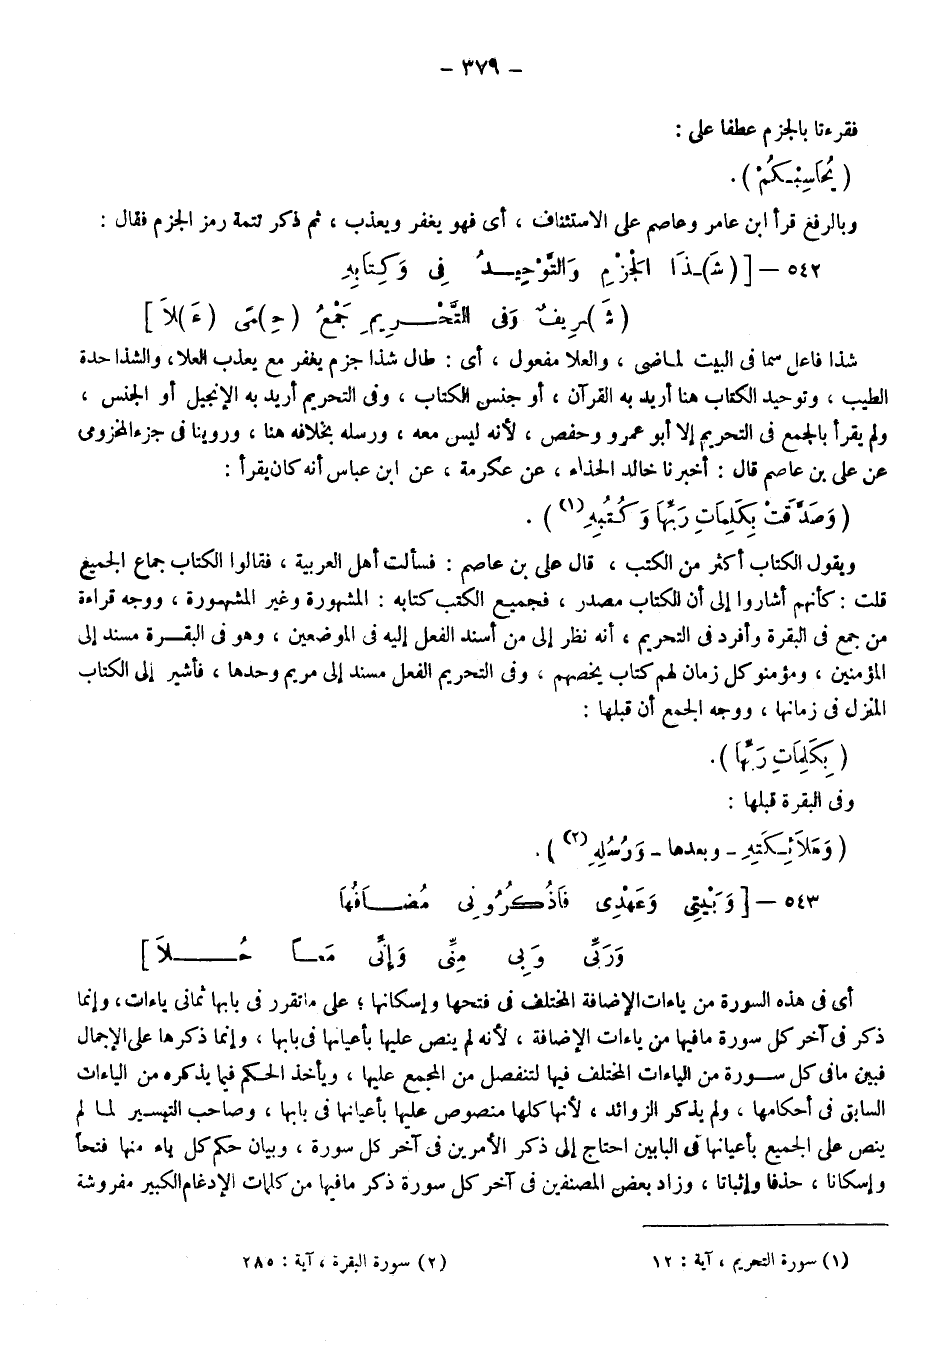 – ٣٧٩ –
فقرءتا بالجزم عطفا على :
( يُحَاسِبْكُمْ ) .
وبالرفع قرأ ابن عامر وعاصم على الاستئناف ، أى فهو يغفر ويعذب ، ثم ذكر تتمة رمز الجزم فقال :
٥٤٢ – [ (شَـ)ـذَا الْجَزْمِ وَالتَّوْحِيدُ فِى وَكِتَابِهِ
(شَـ)ـرِيفٌ وَفِى التَّحْرِيمِ جَمْعُ (حِـ)مًى (عَـ)لاَ ]
شذا فاعل سما فى البيت لماضى ، والعلا مفعول ، أى : طال شذا جزم يغفر مع يعذب العلا، والشذا حدة
الطيب ، وتوحيد الكتاب هنا أريد به القرآن ، أو جنس الكتاب ، وفى التحريم أريد به الإنجيل أو الجنس ،
ولم يقرأ بالجمع فى التحريم إلا أبو عمرو وحفص ، لأنه ليس معه ، ورسله بخلافه هنا ، وروينا فى جزء المخزومى
عن على بن عاصم قال : أخبرنا خالد الحذاء ، عن عكرمة ، عن ابن عباس أنه كان يقرأ :
( وَصَدَّقَتْ بِكَلِمَاتِ رَبِّهَا وَكُتُبِهِ (١) ) .
ويقول الكتاب أكثر من الكتب ، قال على بن عاصم : فسألت أهل العربية ، فقالوا الكتاب جماع الجميع
قلت : كأنهم أشاروا إلى أن الكتاب مصدر ، فجميع الكتب كتابه : المشهورة وغير المشهورة ، ووجه قراءة
من جمع فى البقرة وأفرد فى التحريم ، أنه نظر إلى من أسند الفعل إليه فى الموضعين ، وهو فى البقرة مسند إلى
المؤمنين ، ومؤمنو كل زمان لهم كتاب يخصهم ، وفى التحريم الفعل مسند إلى مريم وحدها ، فأشير إلى الكتاب
المنزل فى زمانها ، ووجه الجمع أن قبلها :
( بِكَلِمَاتِ رَبِّهَا ) .
وفى البقرة قبلها :
( وَمَلاَئِكَتِهِ – وبعدها – وَرُسُلِهِ (٢) ) .
٥٤٣ – [ وَبَيْتِى وَعَهْدِى فَاذْكُرُونِى مُضَافُهَا
وَرَبِّى وَبِى مِنِّى وَإِنِّى مَعًا حُلاَ ]
أى فى هذه السورة من ياءات الإضافة المختلف فى فتحها وإسكانها ؛ على ماتقرر فى بابها ثمانى ياءات ، وإنما
ذكر فى آخر كل سورة مافيها من ياءات الإضافة ، لأنه لم ينص عليها بأعيانها فى بابها ، وإنما ذكرها على الإجمال
فبين ما فى كل سورة من الياءات المختلف فيها لتنفصل من المجمع عليها ، ويأخذ الحكم فيما يذكره من الياءات
السابق فى أحكامها ، ولم يذكر الزوائد ، لأنها كلها منصوص عليها بأعيانها فى بابها ، وصاحب التيسير لما لم
ينص على الجميع بأعيانها فى البابين احتاج إلى ذكر الأمرين فى آخر كل سورة ، وبيان حكم كل ياء منها فتحاً
وإسكانا ، حذفا وإثباتا ، وزاد بعض المصنفين فى آخر كل سورة ذكر مافيها من كلمات الإدغام الكبير مفروشة
(١) سورة التحريم ، آية : ١٢
(٢) سورة البقرة ، آية : ٢٨٥